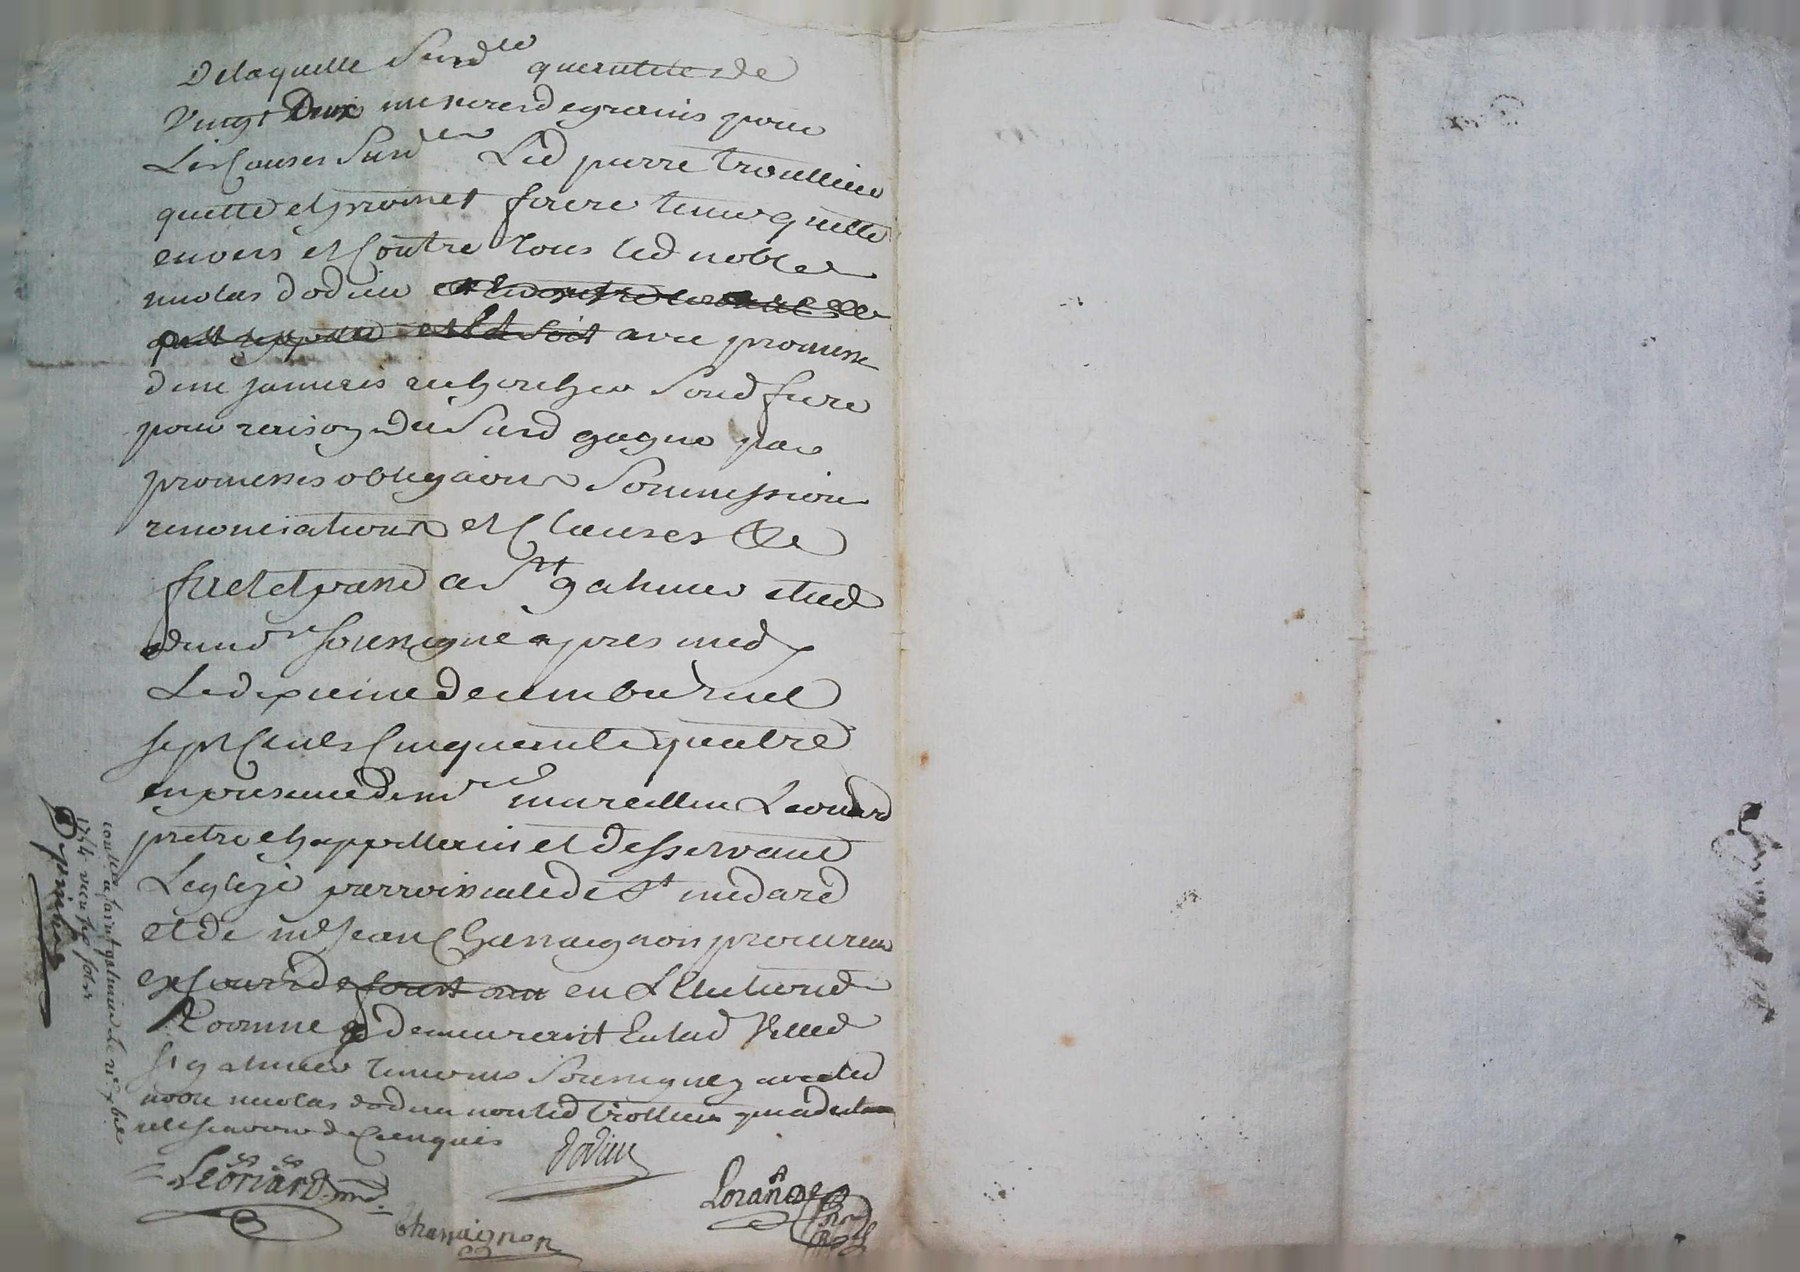 De laquelle Surd.te quantite de
Vingt Deux mesures de grains pour
Les Causes Surd.tes Led pierre troullieu
quitte et promet faire tenir quitte
envers et Contre tous led noble
nicolas dodieu
avec promesse
de ne jamais rechercher Sond frere
pour raison du Surd gagne par
promesses obligaions Soumission
renonciations et Clauses &c
fait et passé a St galmier etude
du nd re soussigne apres midy
Le dixieme decembre mil
sept Cents Cinquante quatre
en presence de mre marcellin Leonard
pretre chappellain et desservant
Leglize parroissiale de St medard
et de me jean Chassaignon procureur
ex Cour de en Lelection de
Roanne demeurant en lad Ville de
St galmier temoins Soussignez avec led
noble nicolas dodieu non led trollieu qui a declare
ne le scavoir de ce enquis
Leonard
dodieu
Chassaignon
Lorange
controllé a saint galmier le
1754